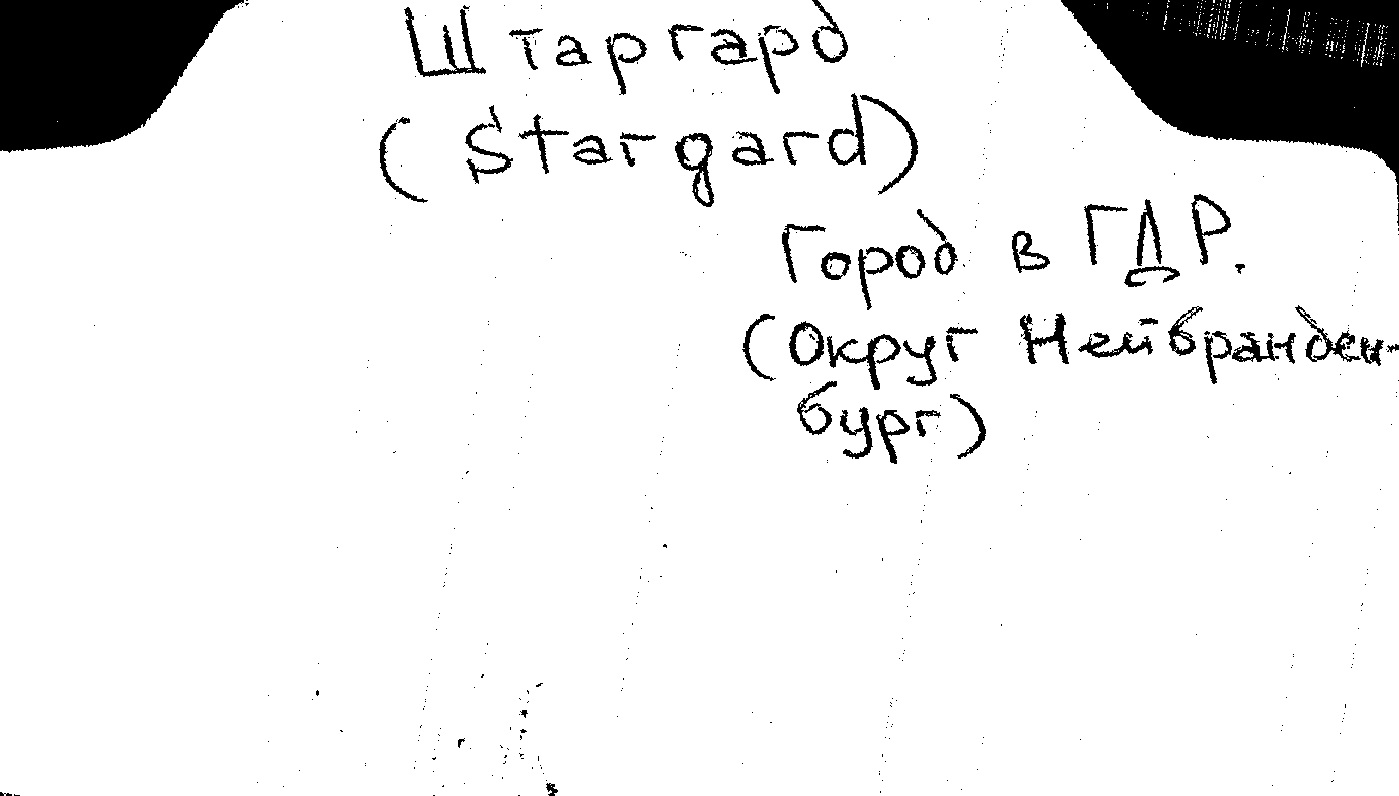 Штаргард
(Stargard)
Город в ГДР.
(Округ Нейбранден-
бург)